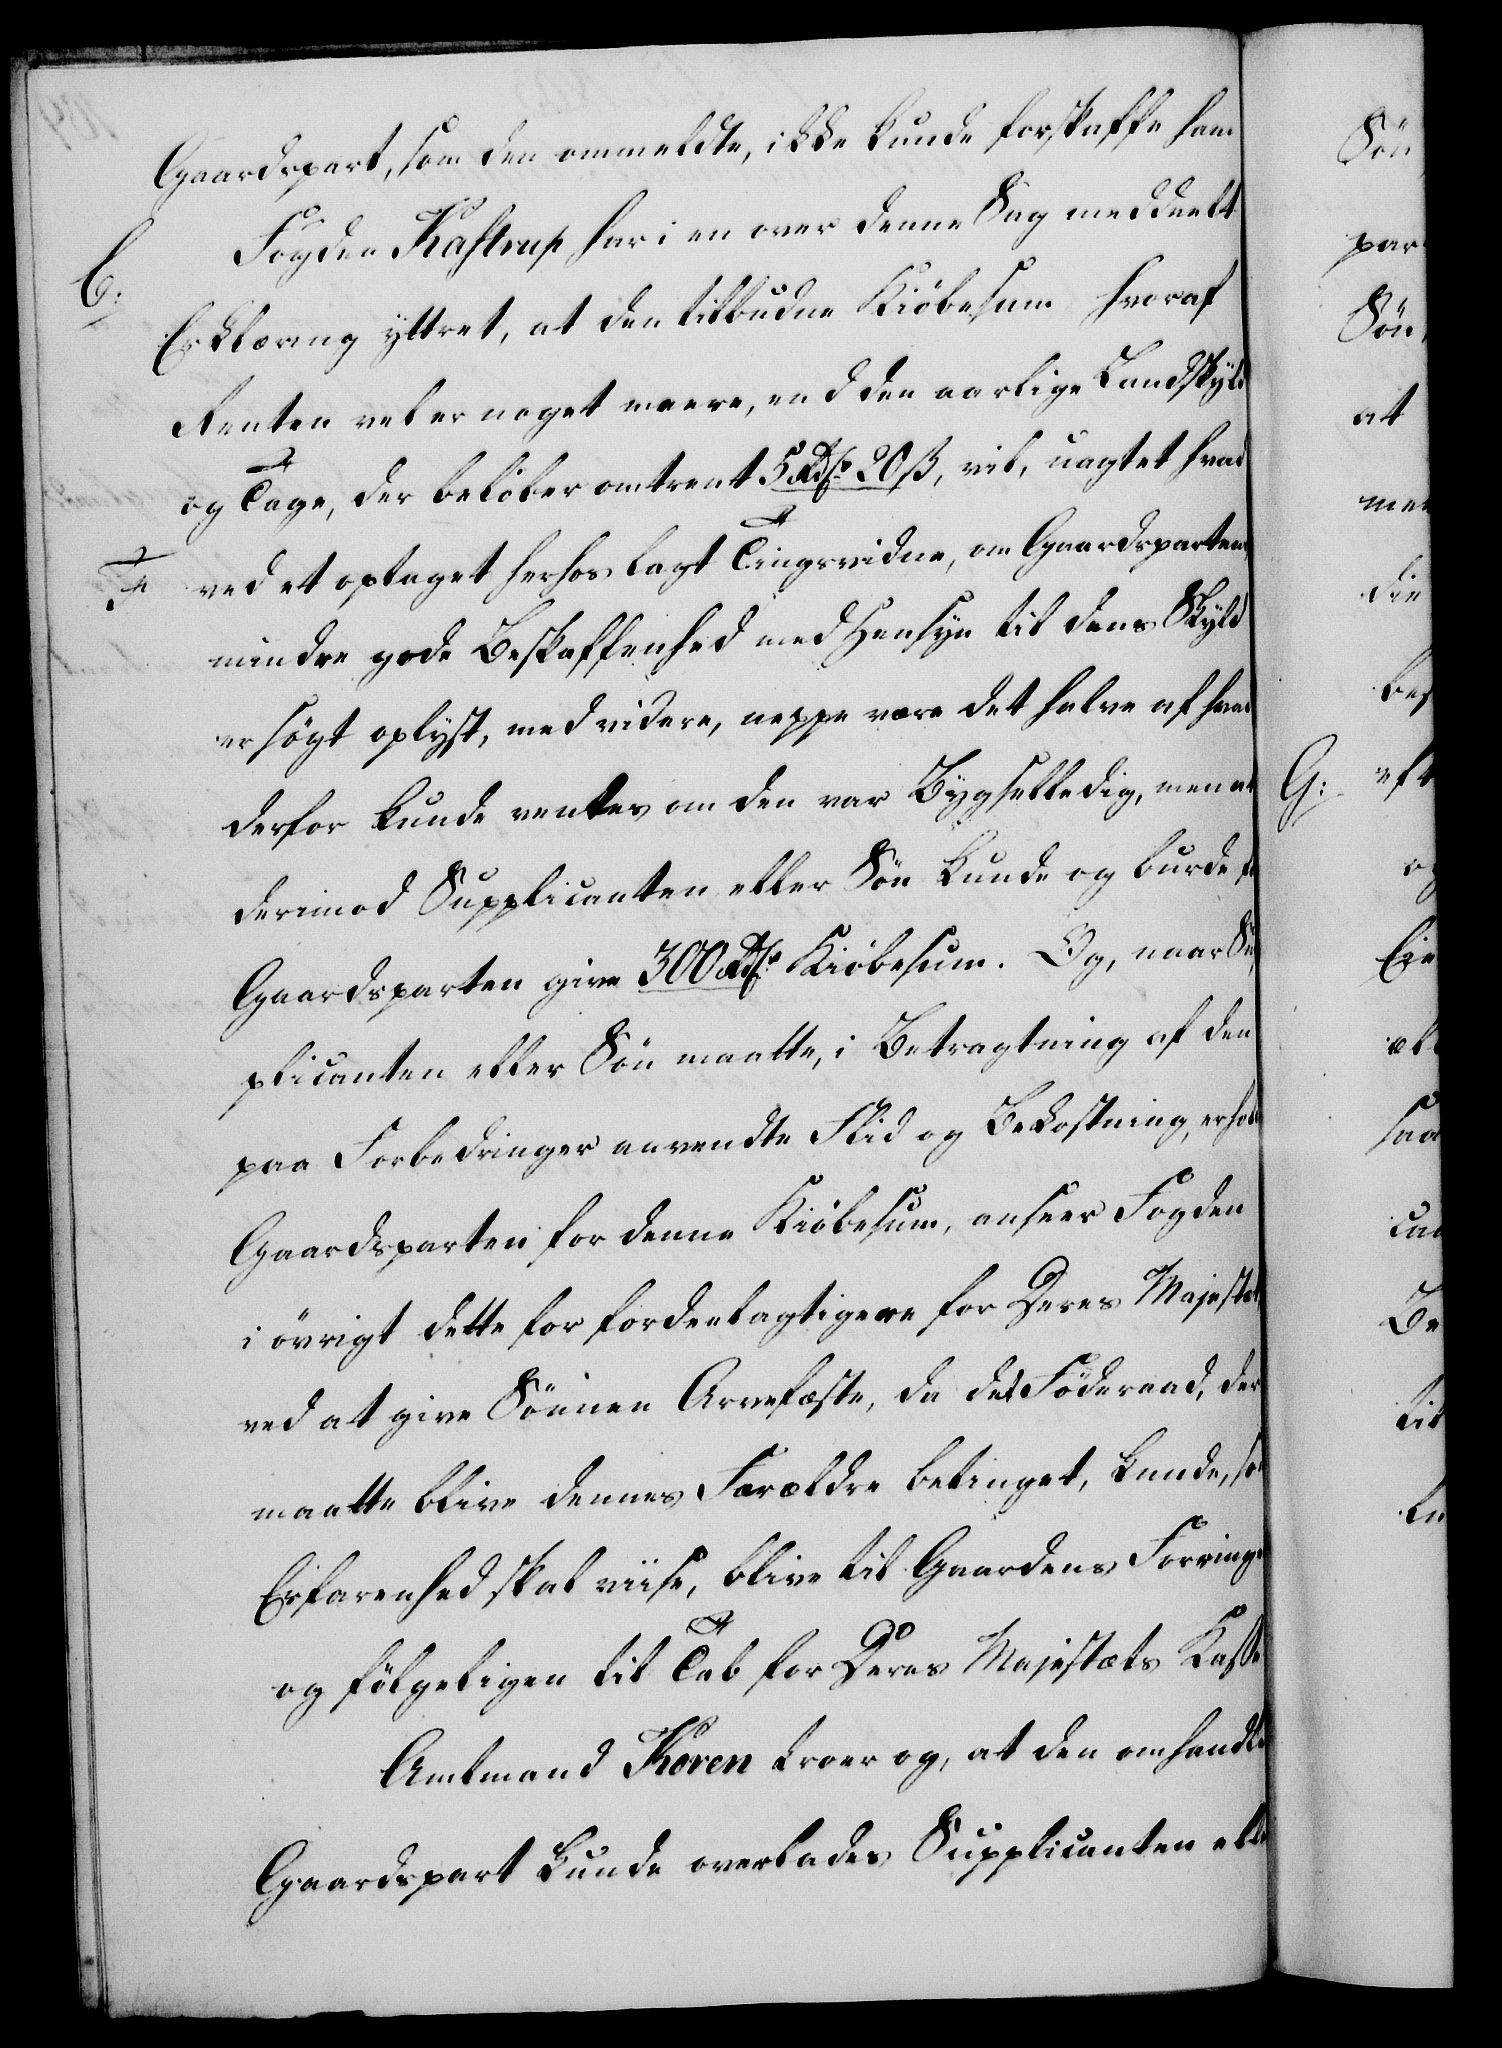 Gaardspart, som den ommeldte, ikke kunde forskaffe ham
Fogden Kastrup har i en over denne Sag meddeelt
E:
Erklæring yttret, at den tilbudne Kiöbesum hvoraf
Renten vel er noget meere, end den aarlige Landskyld
og Tage, der belöber omtrent 5 Rdr 20 ß, vil, uagtet hvad
F ved et optaget herhos lagt Tingsvidne, om Gaardsparten
mindre gode Beskaffenhed med Hensyn til dens Skyld
er sögt oplyst, med videre, neppe være det halve af hvad
derfor kunde ventes om den var Bygselledig, men at
derimod Supplicanten eller Sön kunde og burde f
Gaardsparten give 300 Rdr Kiöbesum. Og, naar Su
plicanten eller Sön maatte, i Betragtning af den
paa Forbedringer anvendte Flid og Bekostning, erhol
Gaardsparten for denne Kiöbesum, anseer Fogden
i övrigt dette for fordeelagtigere for Deres Majestæt
ved at give Sönnen Arvefæste, da det Föderaad, der
maatte blive dennes Forældre betinget, kunde, so
Erfarenhed skal viise, blive til Gaardens Forringe
og fölgeligen til Tab for Deres Majestæts Kasse
Amtmand Koren troer og, at den omhandle
Gaardspart kunde overlades Supplicanten elle
Sön
par
Sön
at
men
die
bes
G: eft
og
Eie
el
saa
cu
De
til